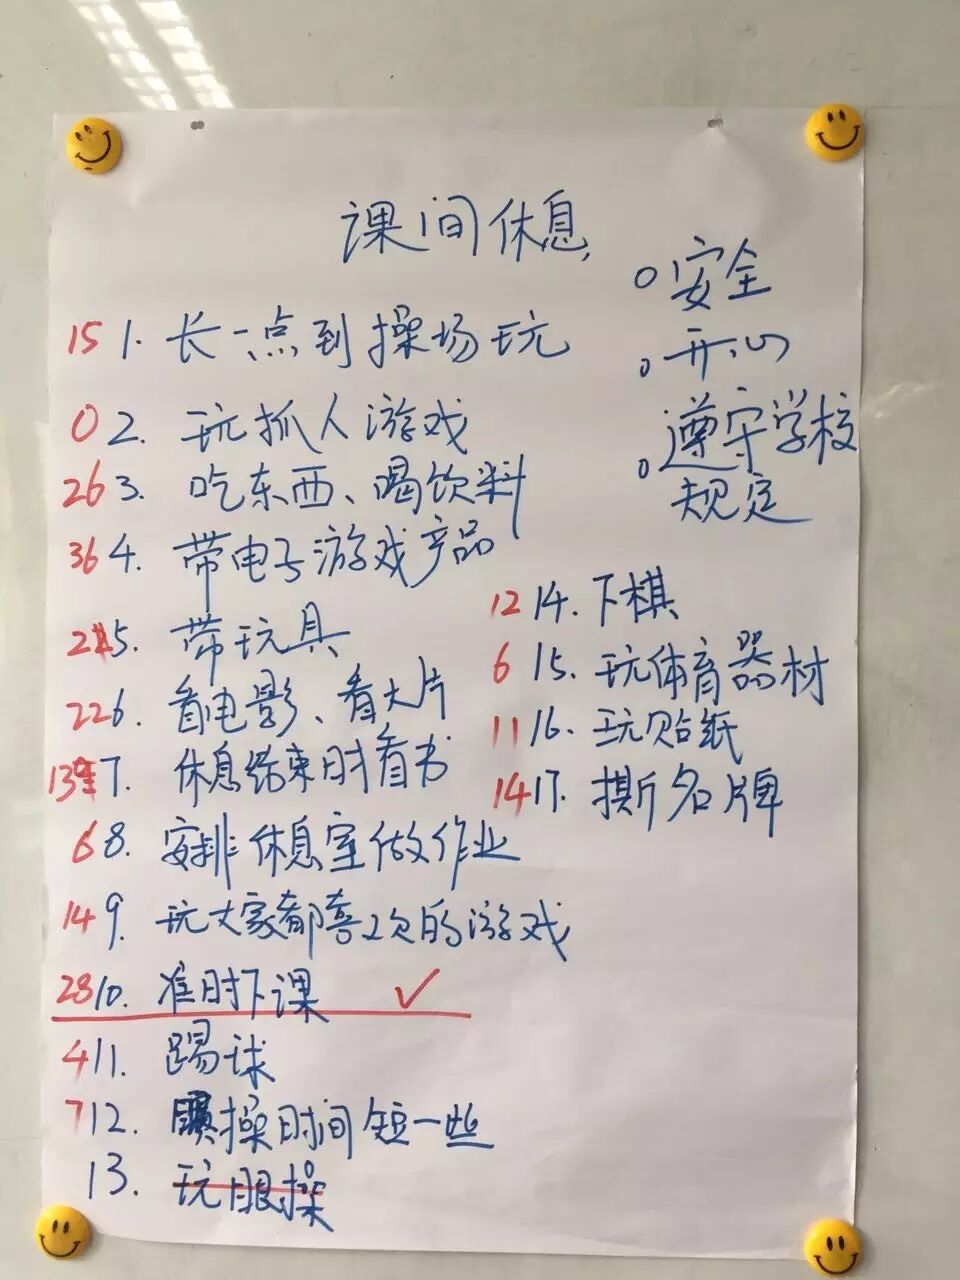 课间休息
○安全
○开心
○遵守学校
规定
15 1. 长一点到操场玩
0 2. 玩抓人游戏
26 3. 吃东西、喝饮料
36 4. 带电子游戏产品
5. 带玩具
22 6. 看电影、看大片
13 7. 休息结束时看书
6 8. 安排休息室做作业
14 9. 玩大家都喜欢的游戏
28 10. 准时下课 ✓
4 11. 踢球
7 12. 操时间短一些
13. 玩眼操
12 14. 下棋
6 15. 玩体育器材
11 16. 玩贴纸
14 17. 撕名牌